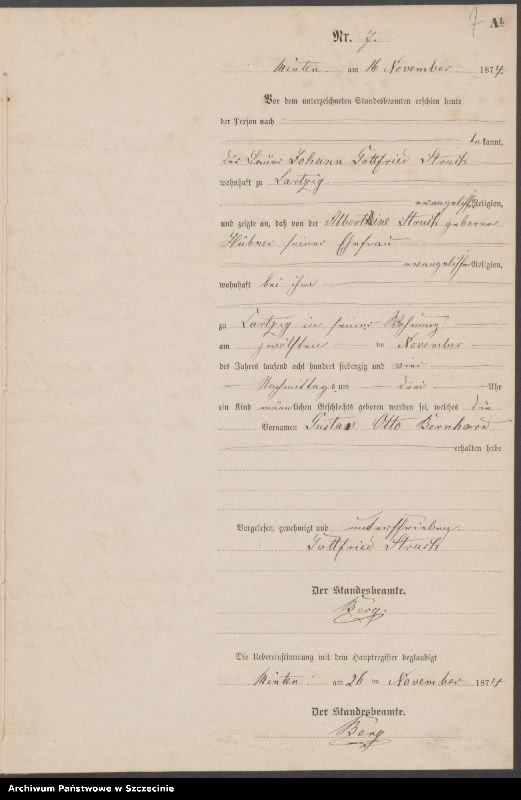 7 A1.
Nr. 7.
Minten am 16 November 1874.
Vor dem unterzeichneten Standesbeamten erschien heute
der Person nach
bekannt,
der Bauer Johann Gottfried
wohnhaft zu
evangelischer Religion,
und zeigte an, daß von der geborenen
Hübner seiner Ehefrau
evangelischer Religion,
wohnhaft bei ihm
zu in seiner Wohnung
am zwölften ten November
des Jahres tausend acht hundert siebenzig und vier
Nachmittags um drei Uhr
ein Kind männlichen Geschlechts geboren worden sei, welches die
Vornamen Gustav Otto Bernhard
erhalten habe
Vorgelesen, genehmigt und unterschrieben.
Gottfried
Der Standesbeamte.
Berg.
Die Uebereinstimmung mit dem Hauptregister beglaubigt
Minten am 26 ten November 1874
Der Standesbeamte.
Berg
Archiwum Państwowe w Szczecinie